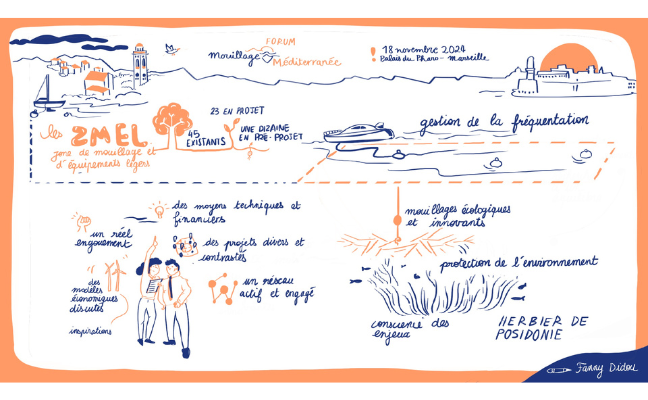 FORUM
mouillage
Méditerranée
! 18 novembre 2024
Palais du Pharo - Marseille
les ZMEL
zone de mouillage et
d'équipements légers
45
EXISTANTS
23 EN PROJET
UNE DIZAINE
EN PRÉ-PROJET
gestion de la fréquentation
un réel
engouement
des moyens techniques et
financiers
des projets divers et
contrastés
un réseau
actif et engagé
des
modèles
économiques
discutés
inspirations
mouillages écologiques
et innovants
protection de l'environnement
conscience des
enjeux
HERBIER DE
POSIDONIE
Fanny Didou